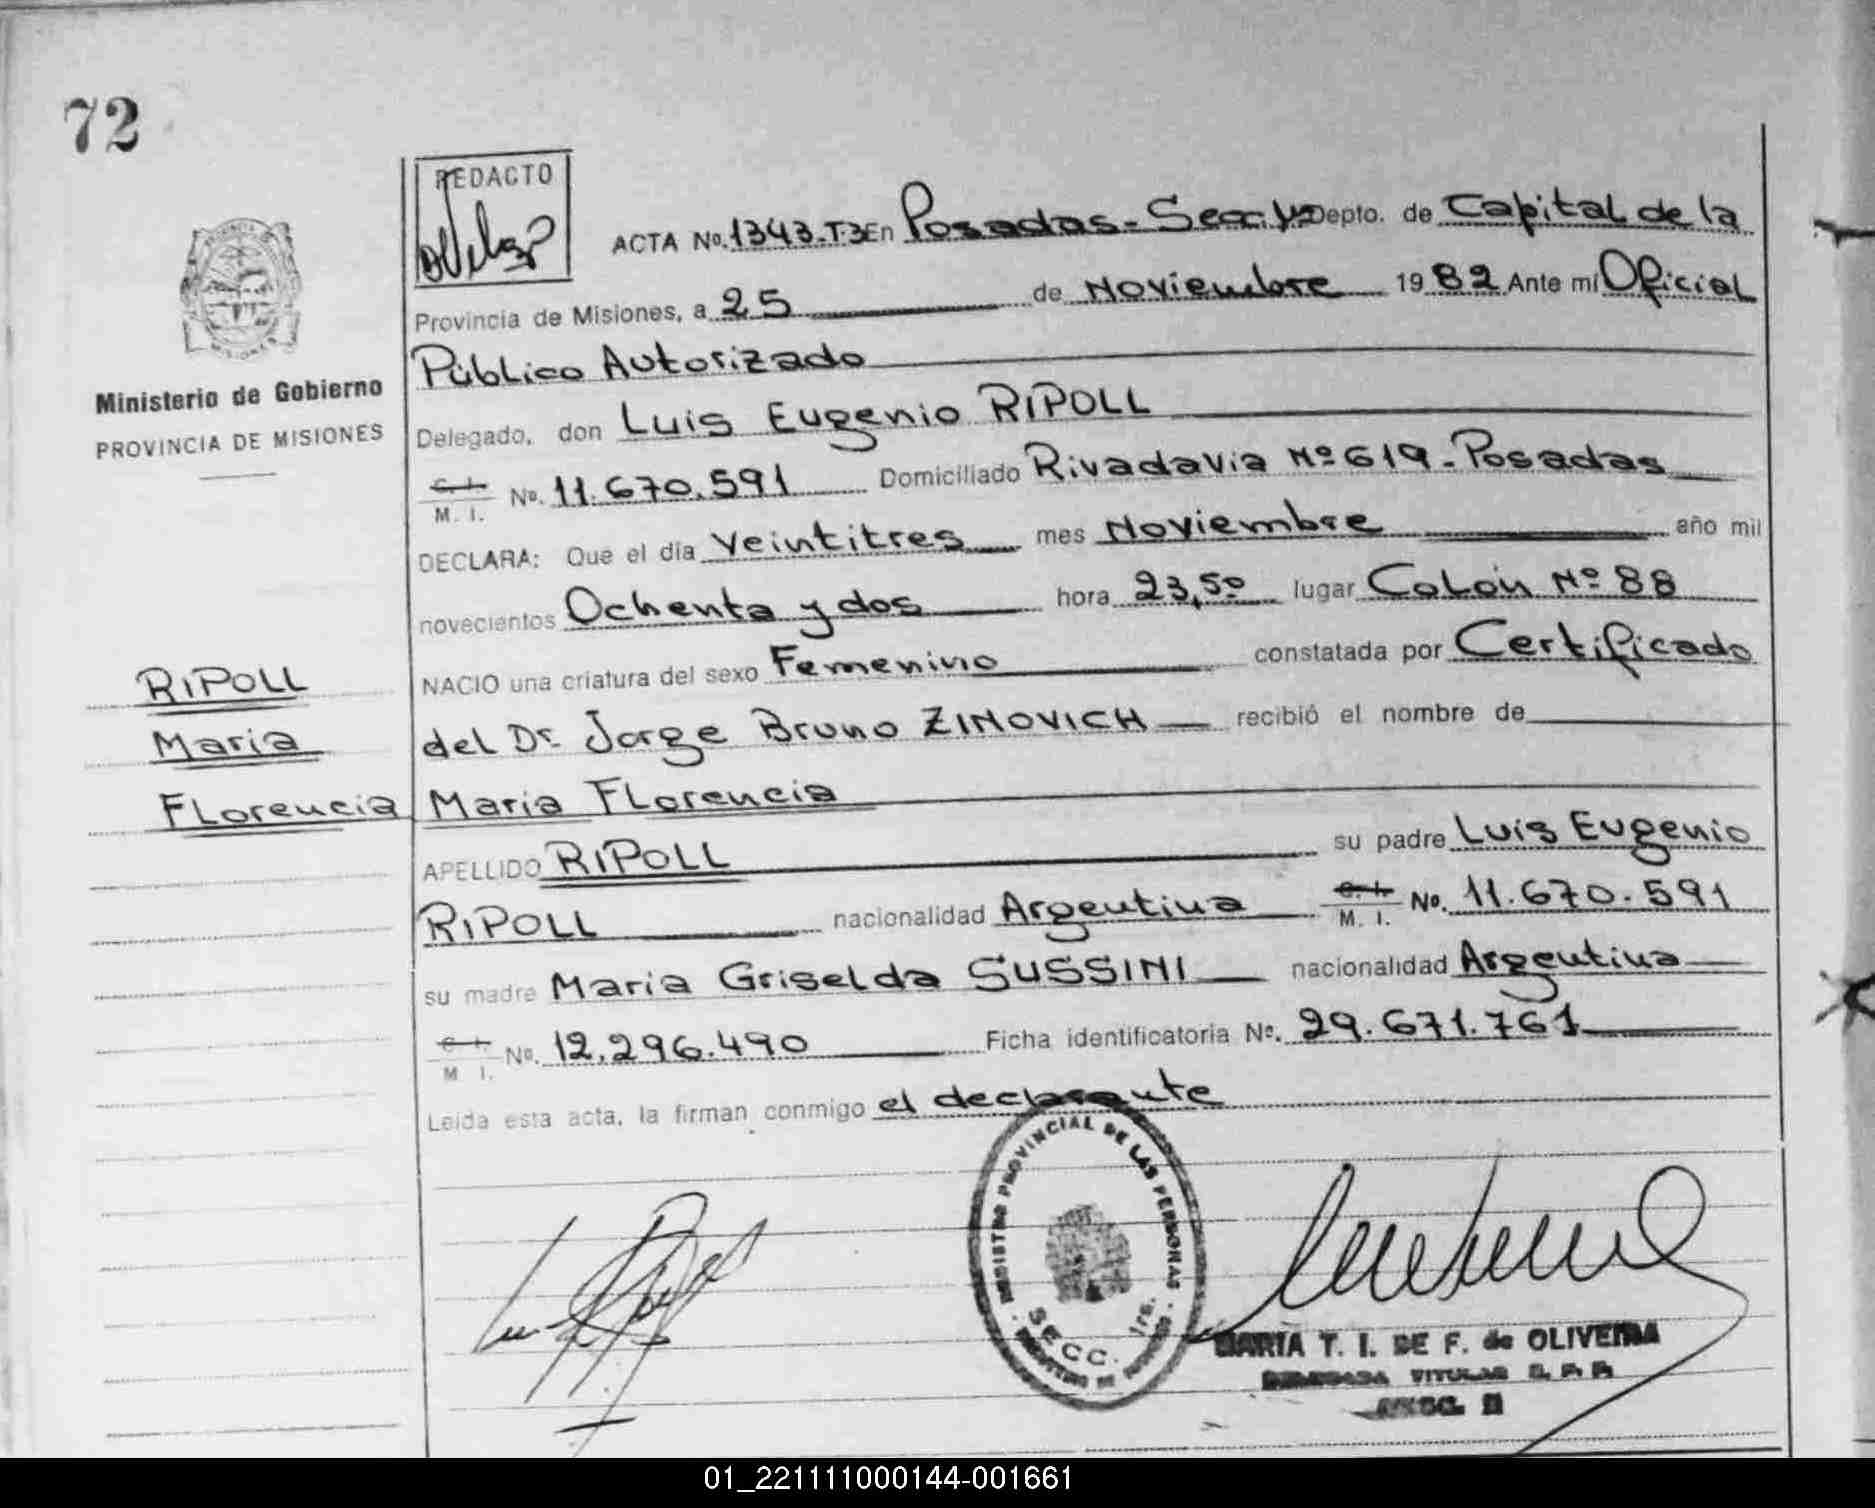 72
REDACTO
ACTA No. 1343-T.3 En Posadas - Secc. Depto. de Capital de la
Provincia de Misiones, a 25 de Noviembre 1982 Ante mí Oficial
Público Autorizado
Ministerio de Gobierno
PROVINCIA DE MISIONES
Delegado, don Luis Eugenio RIPOLL
C. I. M. I. No. 11.670.591 Domiciliado Rivadavia Nº 619 - Posadas
DECLARA: Que el día Veintitres mes Noviembre año mil
novecientos Ochenta y dos hora 23,50 lugar Colón Nº 88
NACIO una criatura del sexo Femenino constatada por Certificado
del Dr. Jorge Bruno ZINOVICH recibió el nombre de
María Florencia
RIPOLL
María
Florencia
APELLIDO RIPOLL su padre Luis Eugenio
RIPOLL nacionalidad Argentina C. I. M. I. No. 11.670.591
su madre María Griselda SUSSINI nacionalidad Argentina
C. I. M. I. No. 12.296.490 Ficha identificatoria No. 29.671.761
Leída esta acta, la firman conmigo el declarante
REGISTRO PROVINCIAL DE LAS PERSONAS
SECC. 1ra.
MARIA T. I. DE F. de OLIVEIRA
DELEGADA TITULAR R. P. P.
01_221111000144-001661